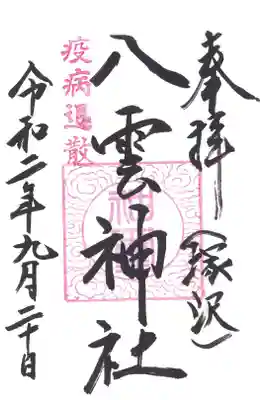 奉拝
(塚沢)
八雲神社
疫病退散
令和二年九月二十日